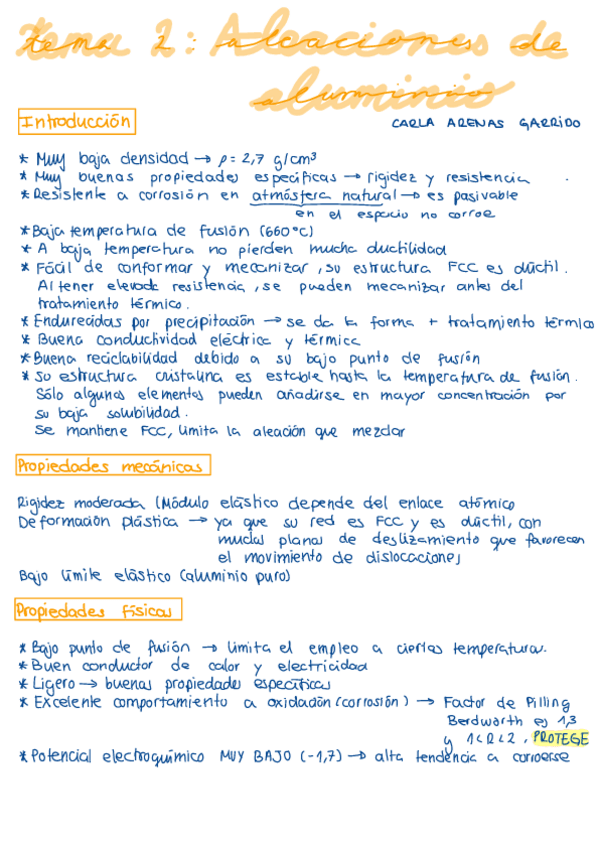 tema 2: Aleaciones de
aluminio
Introducción
CARLA ARENAS GARRIDO
* Muy baja densidad → ρ= 2,7 g/cm³
* Muy buenas propiedades específicas → rigidez y resistencia
* Resistente a corrosión en atmósfera natural → es pasivable
en el espacio no corroe
* Baja temperatura de fusión (660°C)
* A baja temperatura no pierden mucha ductilidad
* Fácil de conformar y mecanizar, su estructura FCC es dúctil.
Al tener elevada resistencia, se pueden mecanizar antes del
tratamiento térmico.
* Endurecidas por precipitación → se da la forma + tratamiento térmico
* Buena conductividad eléctrica y térmica
* Buena reciclabilidad debido a su bajo punto de fusión
* Su estructura cristalina es estable hasta la temperatura de fusión.
Sólo algunos elementos pueden añadirse en mayor concentración por
su baja solubilidad.
Se mantiene FCC, limita la aleación que mezclar
Propiedades mecánicas
Rigidez moderada (Módulo elástico depende del enlace atómico
Deformación plástica → ya que su red es FCC y es dúctil, con
muchos planos de deslizamiento que favorecen
el movimiento de dislocaciones
Bajo límite elástico (aluminio puro)
Propiedades físicas
* Bajo punto de fusión → limita el empleo a ciertas temperaturas.
* Buen conductor de calor y electricidad
* Ligero → buenas propiedades específicas
* Excelente comportamiento a oxidación (corrosión) → Factor de Pilling
Berdworth es 1,3
y 1<R<2. PROTEGE
* Potencial electroquímico MUY BAJO (-1,7) → alta tendencia a corroerse